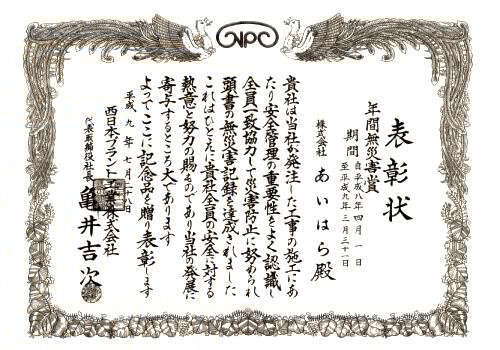 NPC
表彰状
年間無災害賞
期間 自平成八年四月一日
至平成九年三月三十一日
株式会社 あいはら殿
貴社は当社が発注した工事の施工にあ
たり安全管理の重要性をよく認識し
全員一致協力して災害防止に努められ
頭書の無災害記録を達成されました
これはひとえに貴社全員の安全に対する
熱意と努力の賜ものであり当社の発展に
寄与するところ大であります
よってここに記念品を贈り表彰します
平成九年七月二十八日
西日本プラント工業株式会社
代表取締役社長 亀井吉次